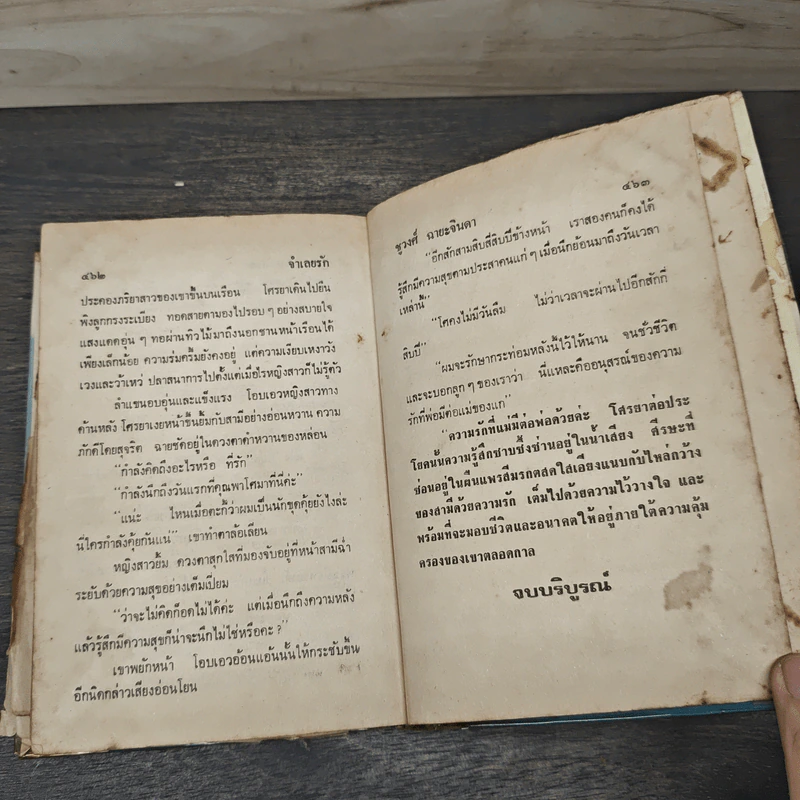 ๔๖๒
จำเลยรัก
ประคองภริยาสาวของเขาขึ้นบนเรือน โศรยาเดินไปยืน
พิงลูกกรงระเบียง ทอดสายตามองไปรอบ ๆ อย่างสบายใจ
แสงแดดอุ่น ๆ ทอผ่านทิวไม้มาถึงนอกชานหน้าเรือนได้
เพียงเล็กน้อย ความร่มครึ้มยังคงอยู่ แต่ความเงียบเหงาวัง
เวงและว้าเหว่ ปลาสนาการไปตั้งแต่เมื่อไรหญิงสาวก็ไม่รู้ตัว
ลำแขนอบอุ่นและแข็งแรง โอบเอวหญิงสาวทาง
ด้านหลัง โศรยาเงยหน้าขึ้นยิ้มกับสามีอย่างอ่อนหวาน ความ
ภักดีโดยสุจริต ฉายชัดอยู่ในดวงตาดำหวานของหล่อน
"กำลังคิดถึงอะไรหรือ ที่รัก"
"กำลังนึกถึงวันแรกที่คุณพาโศมาที่นี่ค่ะ"
"แน่ะ ไหนเมื่อตะกี้ว่าผมเป็นนักขุดคุ้ยยังไงล่ะ
นี่ใครกำลังคุ้ยกันแน่" เขาทำตาล้อเลียน
หญิงสาวยิ้ม ดวงตาสุกใสที่มองจับอยู่ที่หน้าสามีฉ่ำ
ระยับด้วยความสุขอย่างเต็มเปี่ยม
"ว่าจะไม่คิดก็อดไม่ได้ค่ะ แต่เมื่อนึกถึงความหลัง
แล้วรู้สึกมีความสุขก็น่าจะนึกไม่ใช่หรือคะ?"
เขาพยักหน้า โอบเอวอ้อนแอ้นนั้นให้กระชับขึ้น
อีกนิดกล่าวเสียงอ่อนโยน
๔๖๓
ชูวงศ์ ฉายะจินดา
"อีกสักสามสิบสี่สิบปีข้างหน้า เราสองคนก็คงได้
รู้สึกมีความสุขตามประสาคนแก่ ๆ เมื่อนึกย้อนมาถึงวันเวลา
เหล่านี้"
"โศคงไม่มีวันลืม ไม่ว่าเวลาจะผ่านไปอีกสักกี่
สิบปี"
"ผมจะรักษากระท่อมหลังนี้ไว้ให้นาน จนชั่วชีวิต
และจะบอกลูก ๆ ของเราว่า นี่แหละคืออนุสรณ์ของความ
รักที่พ่อมีต่อแม่ของแก"
"ความรักที่แม่มีต่อพ่อด้วยค่ะ โศรยาต่อประ
โยคนั้นความรู้สึกซาบซึ้งซ่านอยู่ในน้ำเสียง ศีรษะที่
ซ่อนอยู่ในผืนแพรสีมรกตสดใสเอียงแนบกับไหล่กว้าง
ของสามีด้วยความรัก เต็มไปด้วยความไว้วางใจ และ
พร้อมที่จะมอบชีวิตและอนาคตให้อยู่ภายใต้ความคุ้ม
ครองของเขาตลอดกาล
จบบริบูรณ์